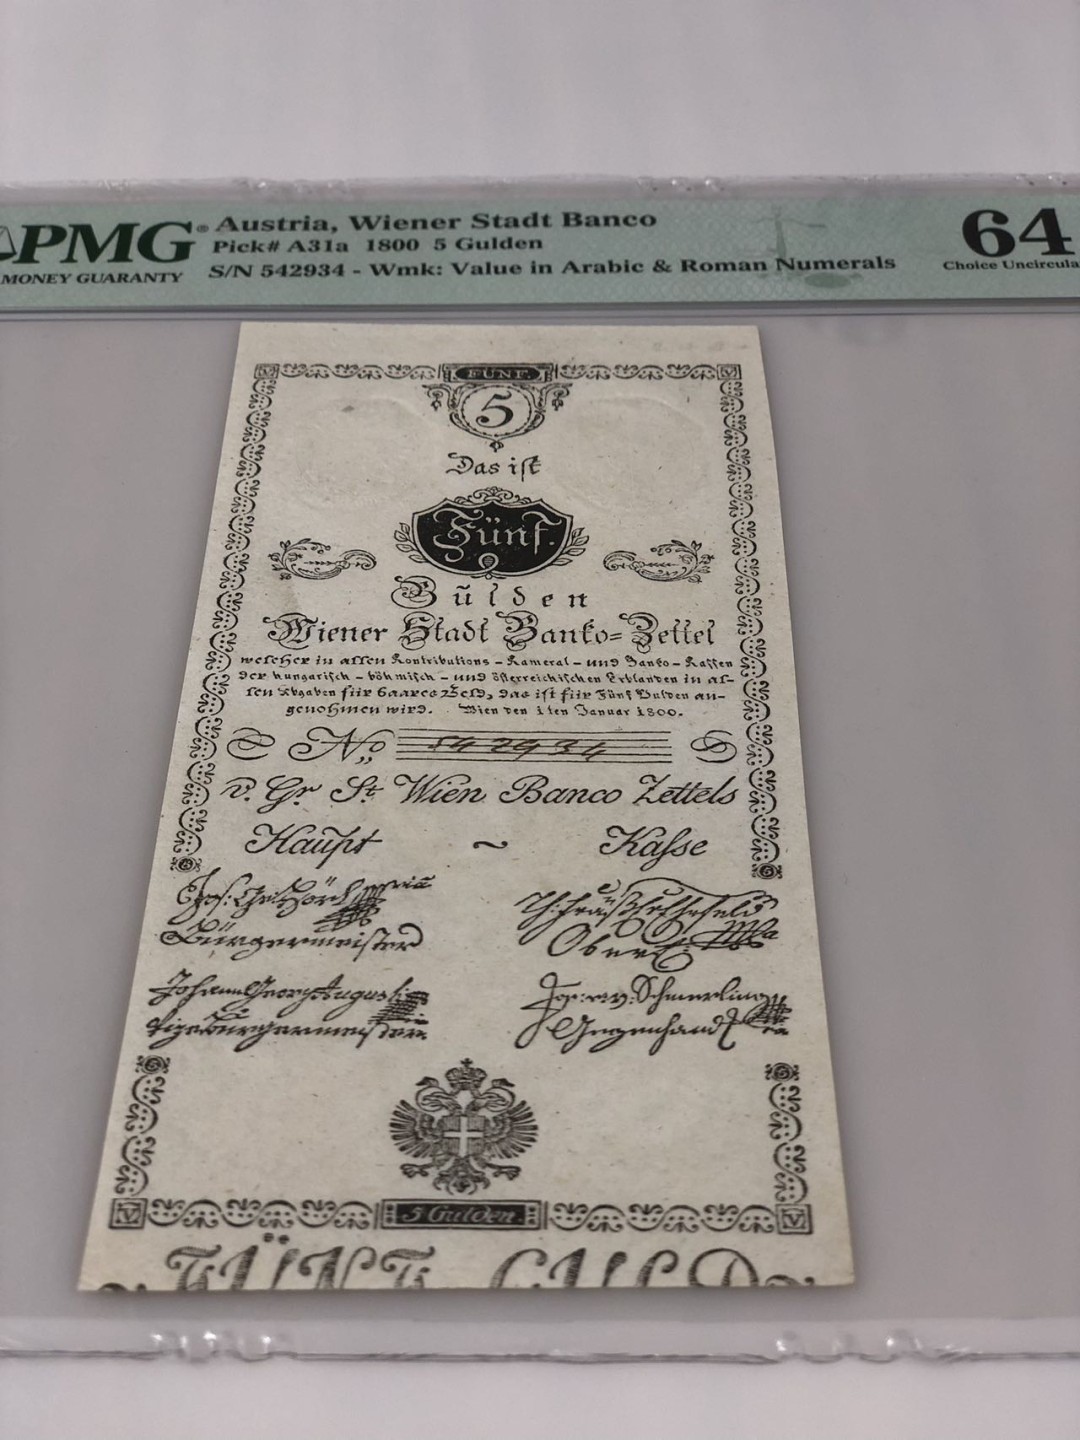 PMG® Austria, Wiener Stadt Banco
Pick# A31a 1800 5 Gulden
MONEY GUARANTY S/N 542934 - Wmk: Value in Arabic & Roman Numerals
64
Choice Uncircula
FÜNF.
V V
5
Das ist
Fünf.
Gulden
Wiener Stadt Banko=Zettel
welcher in allen Kontributions - Kameral - und Banko - Kassen
der hungarisch - böhmisch - und österreichischen Erblanden in al-
len Abgaben für baares Geld, das ist für Fünf Gulden an-
genohmen wird. Wien den 1ten Januar 1800.
No 542934
v. Gr St Wien Banco Zettels
Haupt ~ Kasse
Bürgermeister
Johann Georg Augusti
Jos: v. Schmerling
Vizebürgermeister
Gegenhand
V 5 Gulden. V
FÜNF GULD